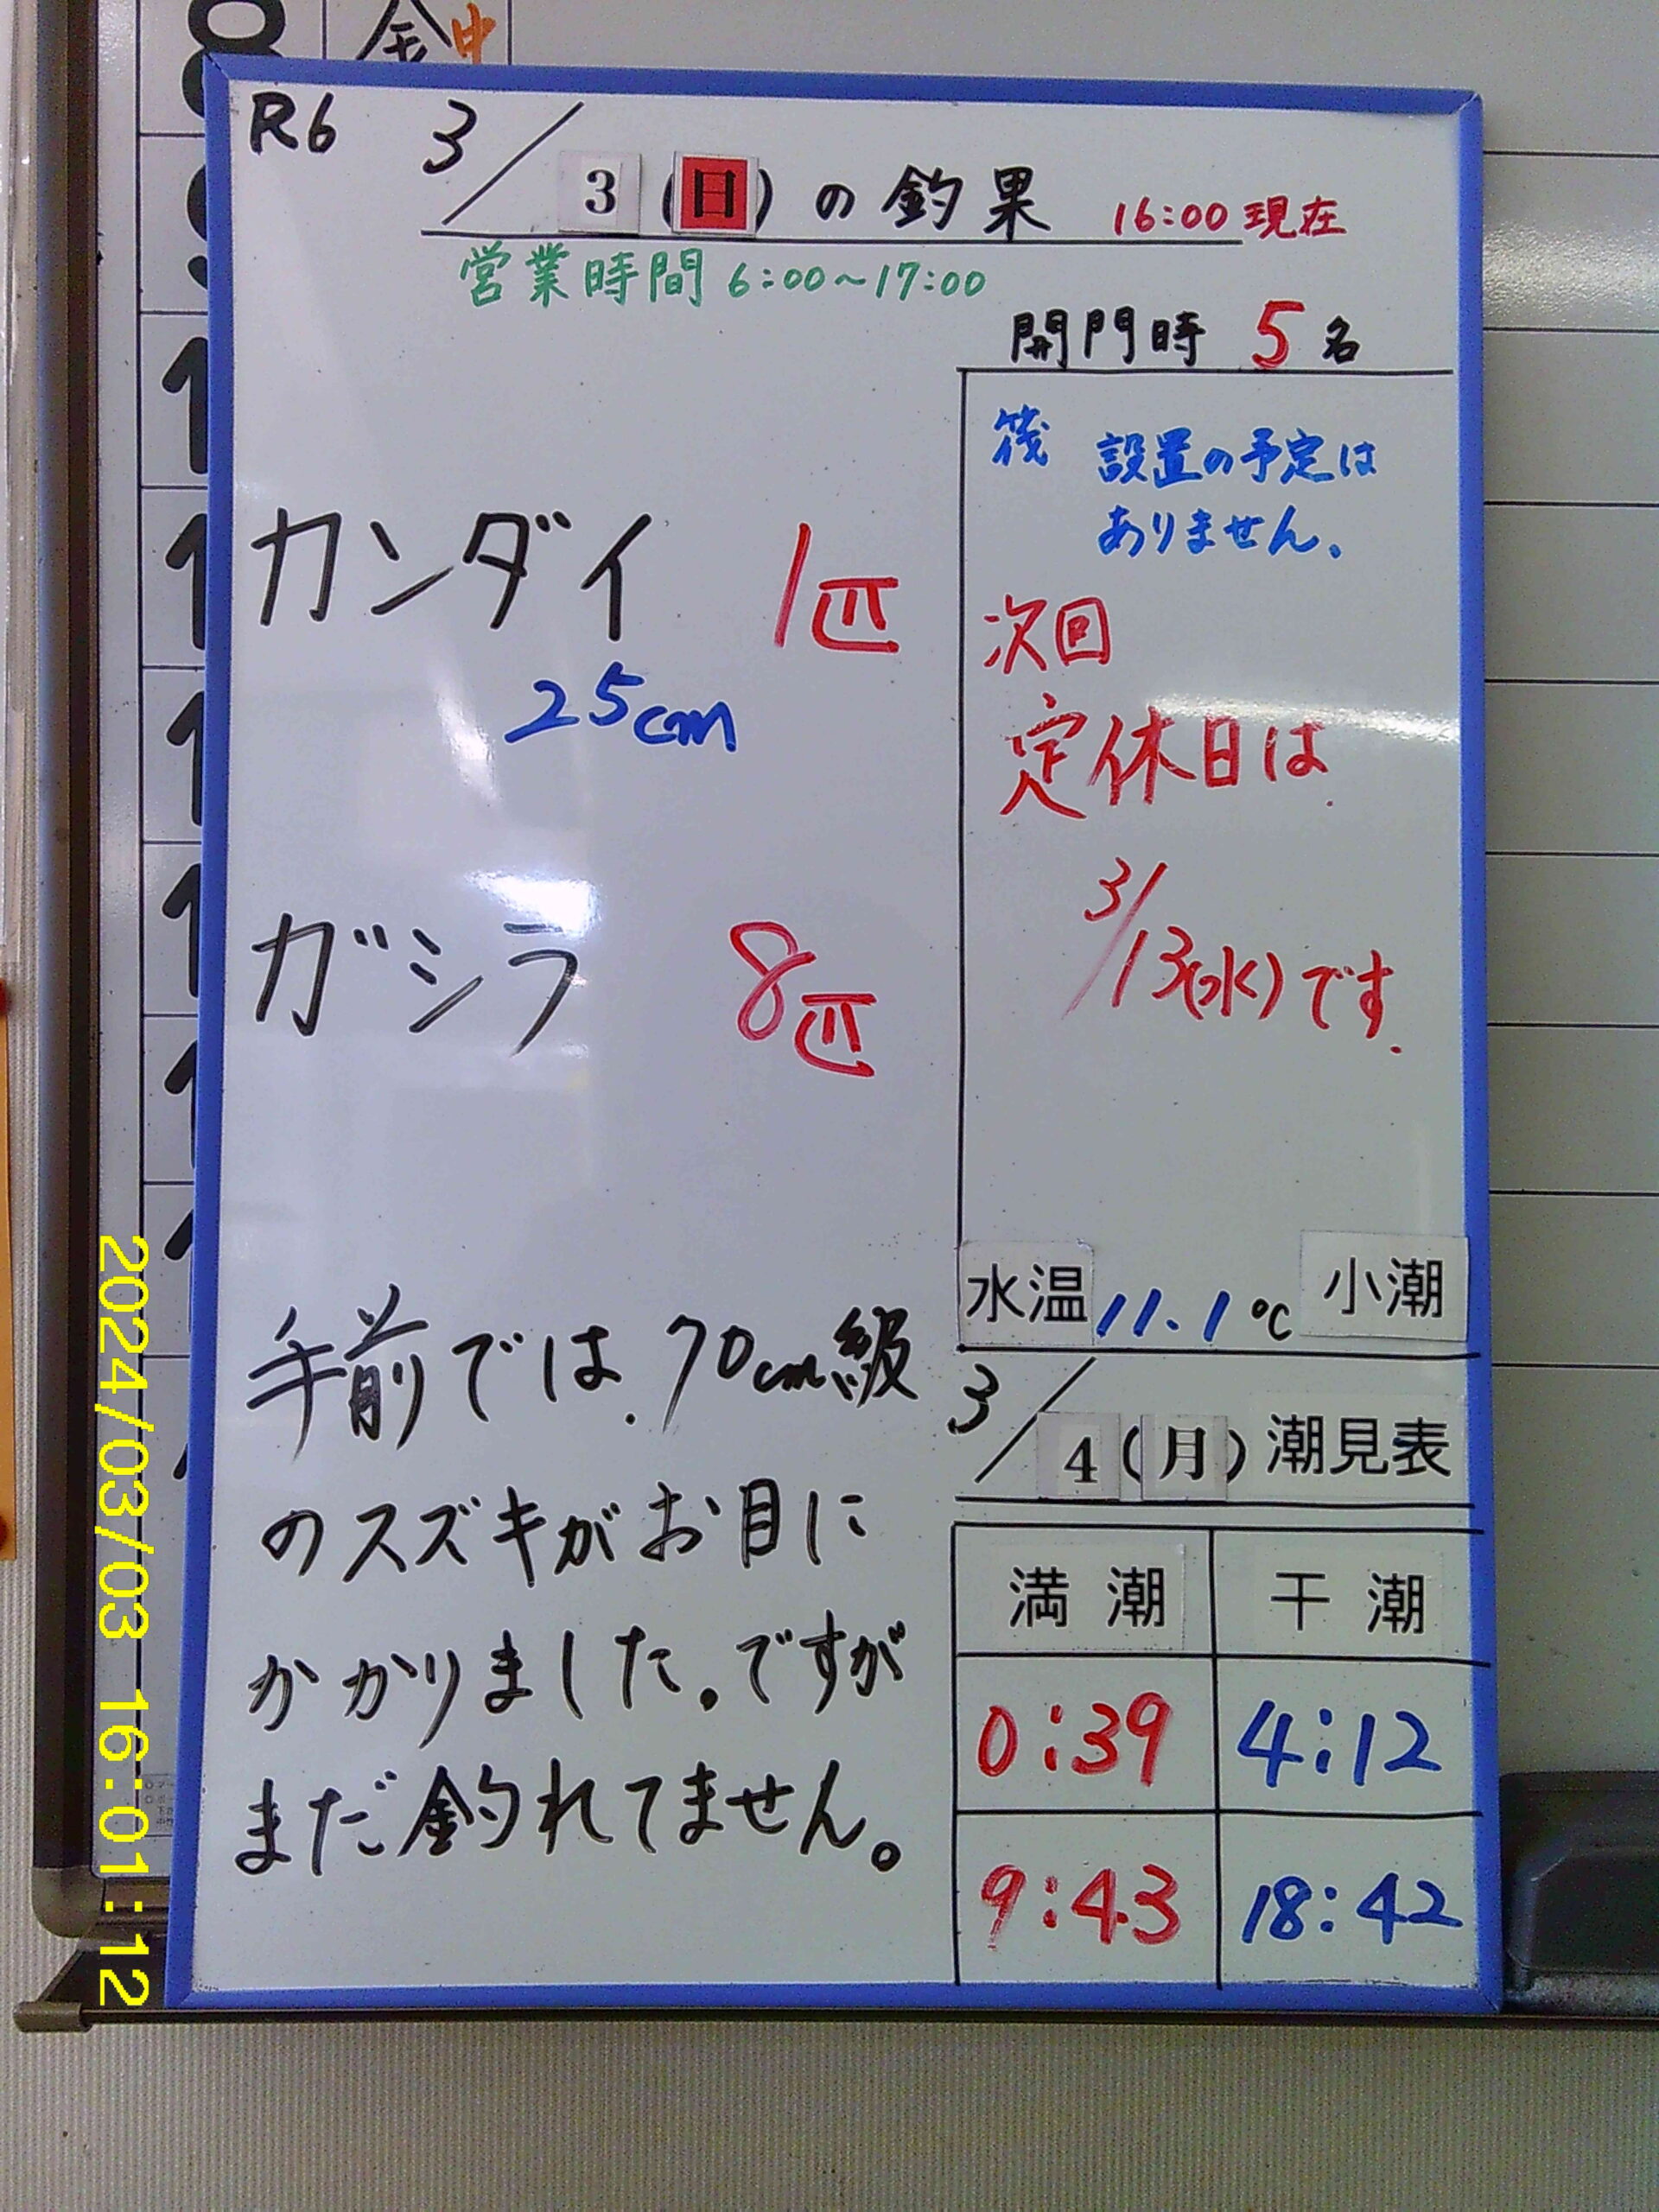 金中
R6 3/3(日)の釣果 16:00現在
営業時間 6:00~17:00
開門時 5名
筏 設置の予定は
ありません。
次回
定休日は
3/13(水)です.
カンダイ 1匹
25cm
ガシラ 8匹
手前では.70cm級
のスズキがお目に
かかりました。ですが
まだ釣れてません。
水温 11.1℃ 小潮
3/4(月)潮見表
満潮 干潮
0:39 4:12
9:43 18:42
2024/03/03 16:01:12